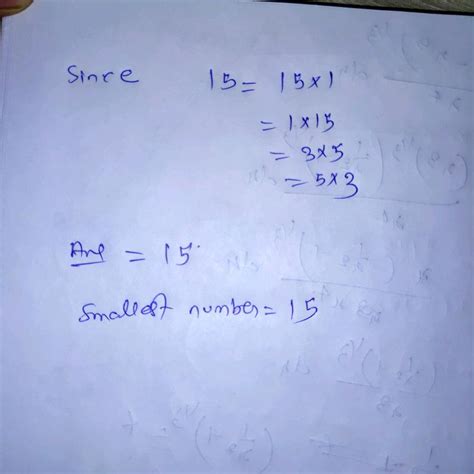 Since 15 = 15×1
= 1×15
= 3×5
= 5×3
Ans = 15
Smallest number = 15